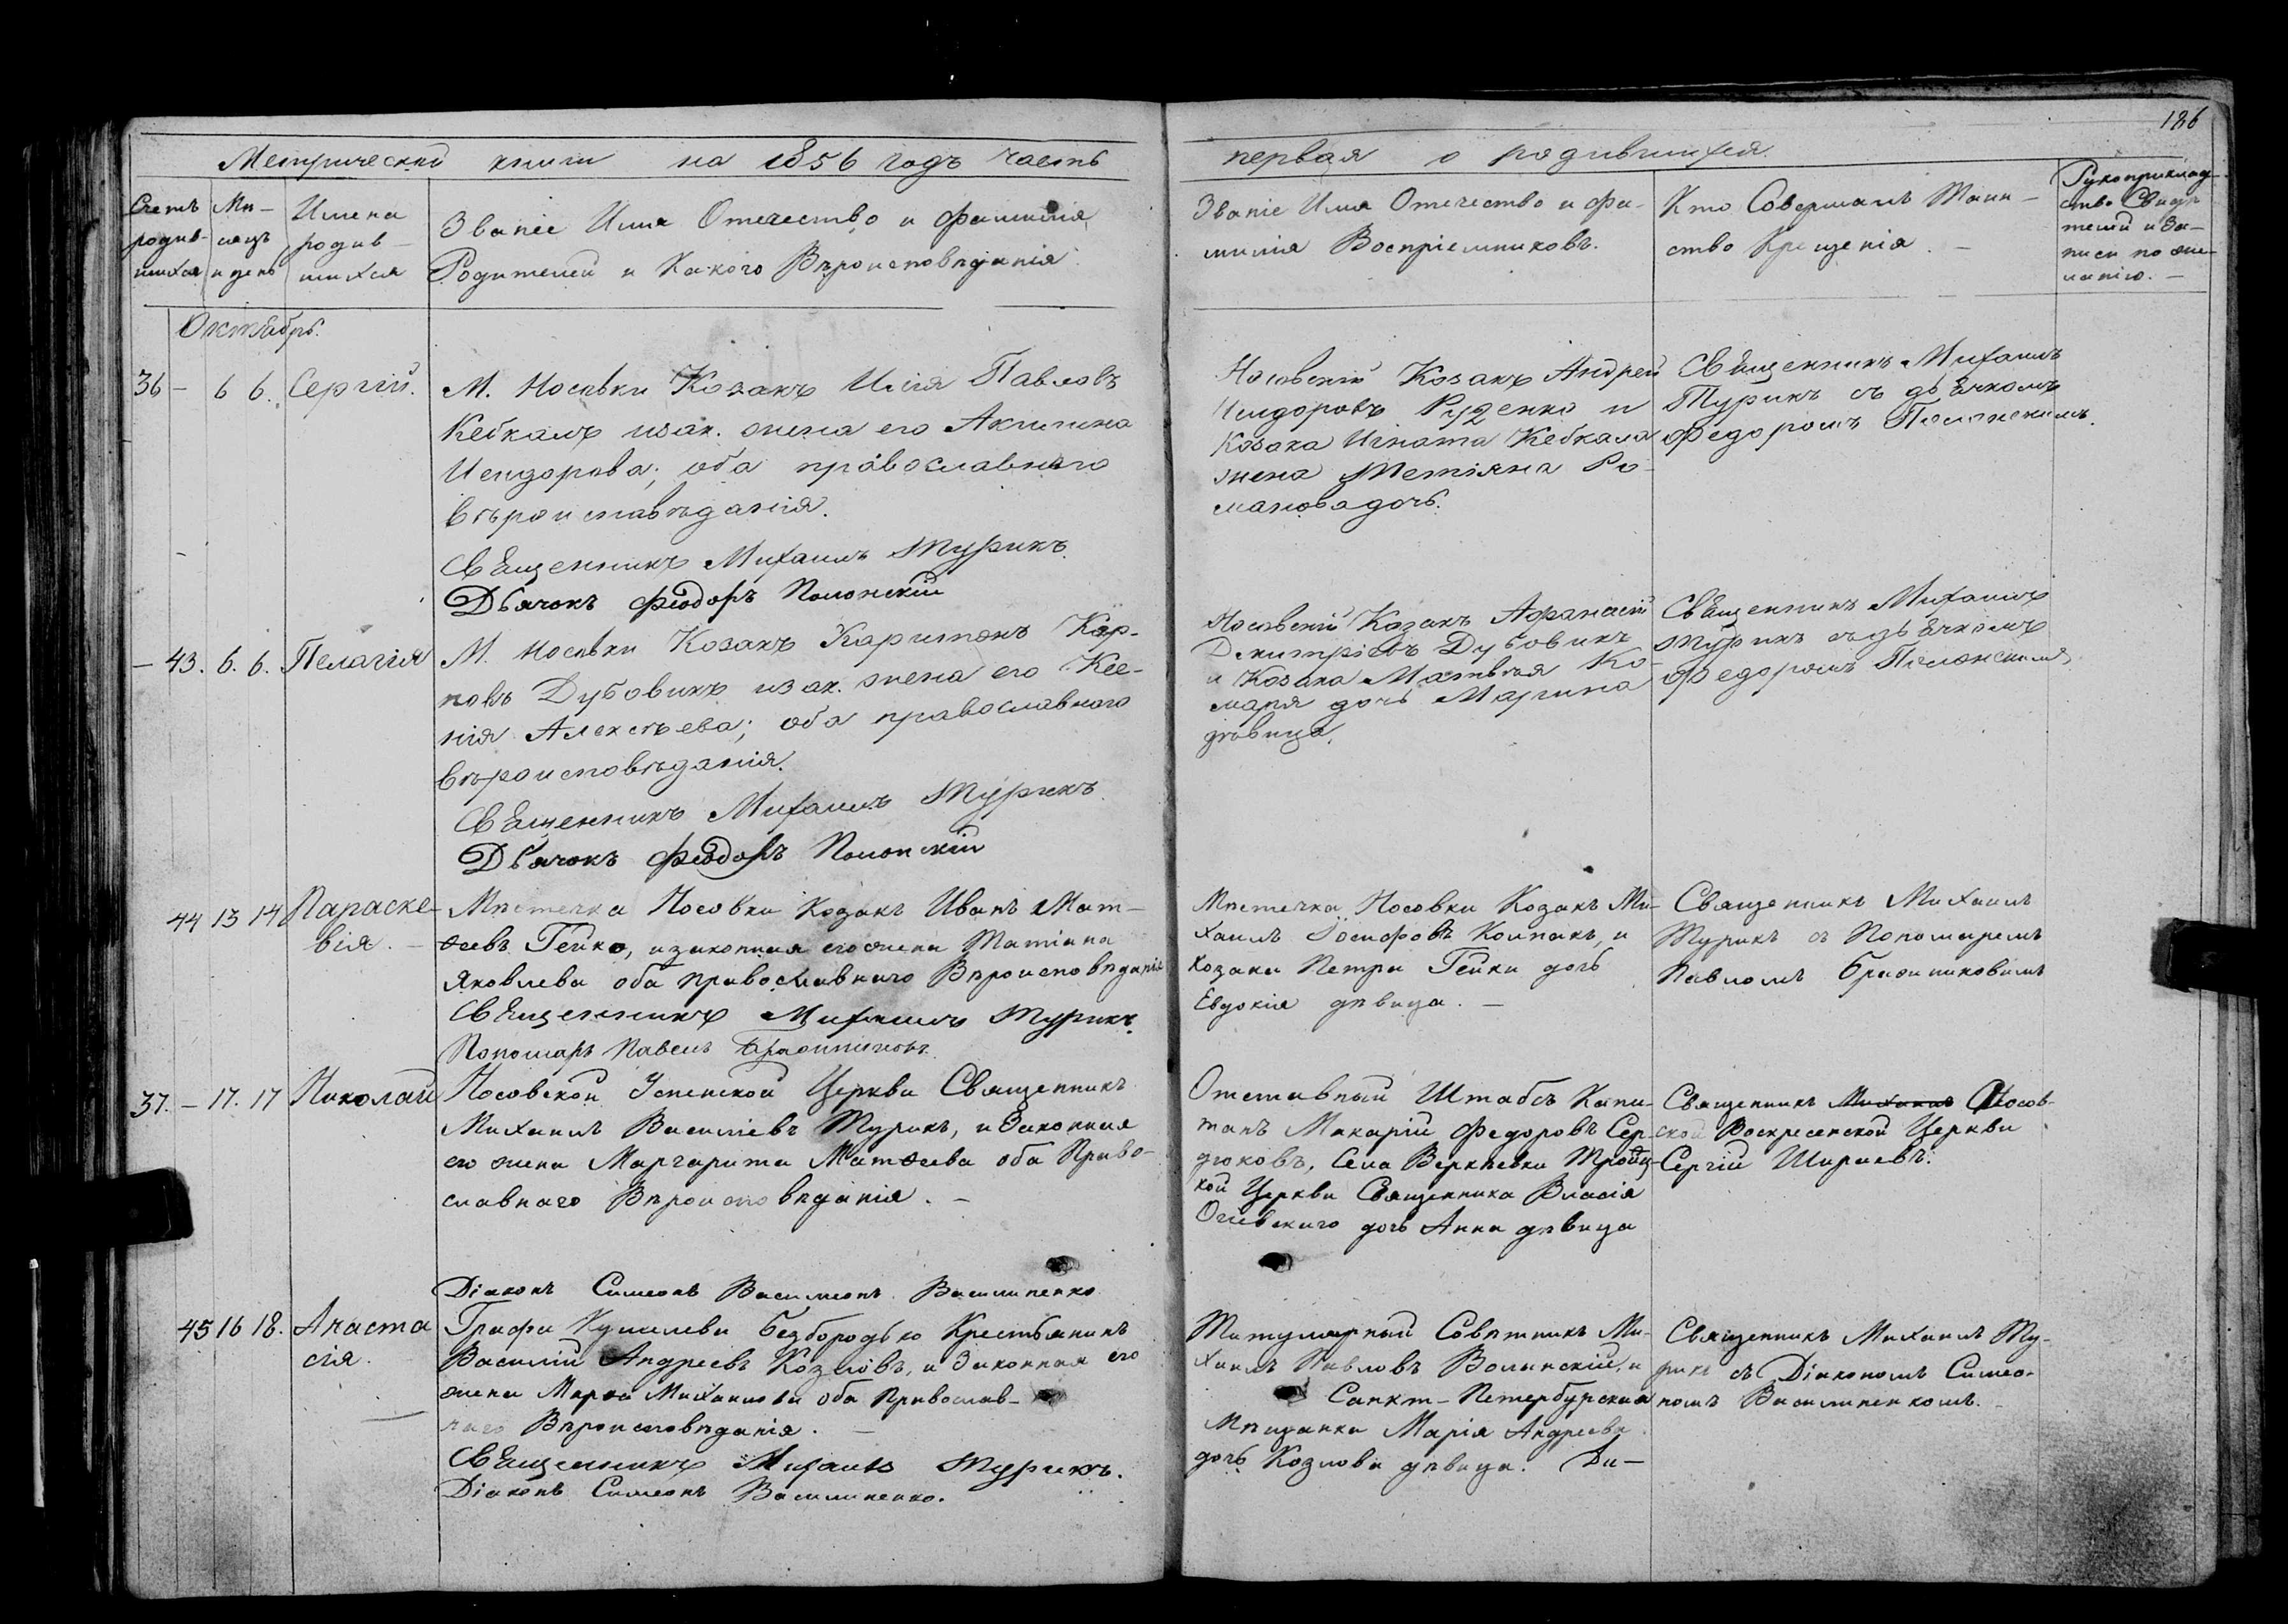 186
Метрической книги на 1856 годъ часть
первая о родившихся.
Счетъ родив- шихся
Мѣ- сяцъ и день
Имена родив- шихся
Званіе Имя Отечество и Фамилія
Родителей и Какого Вѣроисповѣданія.
Званіе Имя Отечество и Фа-
милія Воспріемниковъ.
Кто Совершалъ Таин-
ство Крещенія. -
Рукоприклад-
ство Свидѣ-
телей и За-
писи по же-
ланію. -
Октябрь.
36 - 6 6. Сергій.
М. Носовки Козакъ Илія Павловъ
Кебкалъ изак. жена его Акилина
Исидорова; оба православного
вѣроисповѣданія.
Священникъ Михаилъ Турикъ.
Дьячокъ Феодоръ Полонскій
Носовскій Козакъ Андрей
Исидоровъ Руденко и
Козака Игната Кебкала
жена Тетіяна Ро-
манова дочь.
Священникъ Михаилъ
Турикъ съ дьячкомъ
Федоромъ Полонскимъ.
- 43. 6. 6. Пелагія
М. Носовки Козакъ Харитонъ Кар-
повъ Дубовикъ изак. жена его Ксе-
нія Алексѣева; оба православного
вѣроисповѣданія.
Священникъ Михаилъ Турикъ
Дьячокъ Феодоръ Полонскій
Носовскій Козакъ Афанасій
Дмитріевъ Дубовикъ
и Козака Матвѣя Ко-
маря дочь Марина
дѣвица.
Священникъ Михаилъ
Турикъ съ дьячкомъ
Федоромъ Полонскимъ
44 13 14 Параске-
вія. -
Мѣстечка Носовки Козакъ Иванъ Мат-
ѳеевъ Гейко, изаконная его жена Татіана
Яковлева оба Православнаго Вѣроисповѣданія
Священникъ Михаилъ Турикъ.
Пономарь Павелъ
Мѣстечка Носовки Козакъ Ми-
хаилъ Іосифовъ Колпакъ, и
Козака Петра Гейки дочь
Евдокія дѣвица. -
Священникъ Михаилъ
Турикъ съ Пономаремъ
Павломъ
37. - 17. 17 Николай
Носовской Успенской Церкви Священникъ
Михаилъ Василіевъ Турикъ, и Законная
его жена Маргарита Матѳеева оба Право-
славнаго Вѣроисповѣданія. -
Діаконъ Симеонъ Василиенко
Отставный Штабсъ Капи-
танъ Макарій Федоровъ Сер-
дюковъ, Села Веркіевки Троиц-
кой Церкви Священника Власія
Огіевскаго дочь Анна дѣвица
Священникъ Михаилъ Носов-
ской Воскресенской Церкви
Сергій Шираевъ.
45 16 18. Анаста
сія.
Графа Кушелева Безбородько Крестьянинъ
Василій Андреевъ Козловъ, и Законная его
жена Марѳа Михаилова оба Православ-
наго Вѣроисповѣданія. -
Священникъ Михаилъ Турикъ.
Діаконъ Симеонъ Василиненко.
Титулярный Совѣтникъ Ми-
хаилъ Павловъ Волинскій, и
Санкт-Петербурская
Мѣщанка Марія Андреева
дочь Козлова дѣвица.
Священникъ Михаилъ Ту-
рикъ съ Діакономъ Симео-
номъ Василиненкомъ.